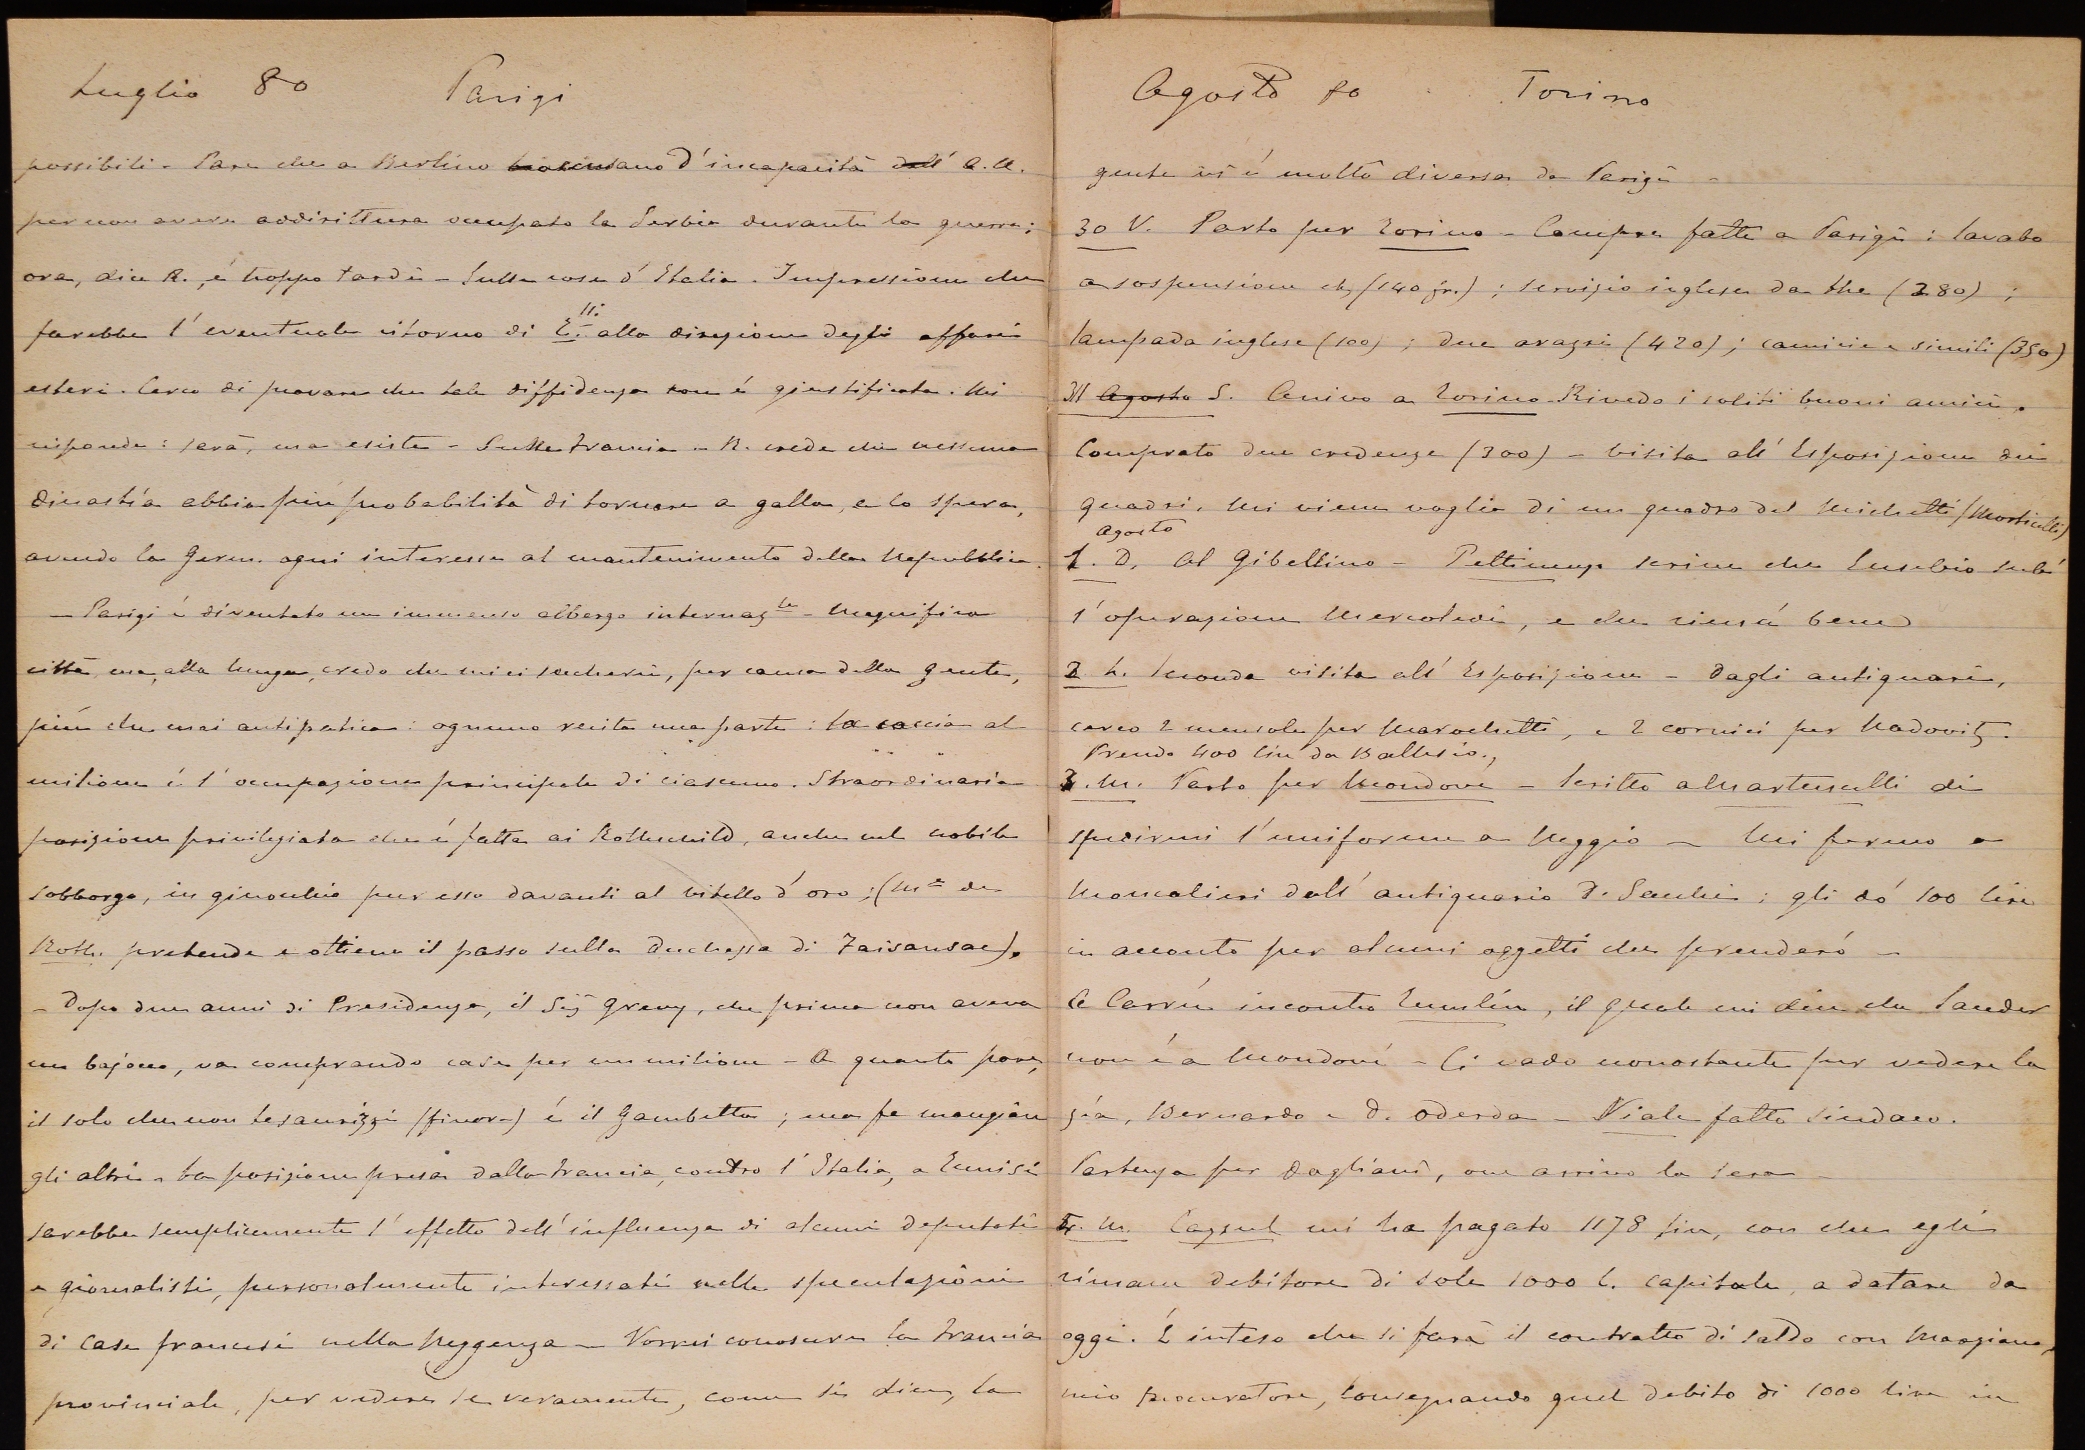 Luglio 80 Parigi
possibili - Pare che a Berlino d'incapacità dell' A.U.
per non avere addirittura occupato la Serbia durante la guerra;
ora, dice R., è troppo tardi - Sulle cose d'Italia. Impressione che
farebbe l'eventuale ritorno di alla direzione degli affari
esteri. Cerco di provare che tale diffidenza non è giustificata. Mi
risponde: sarà, ma esiste - Sulla Francia - R. crede che nessuna
dinastia abbia più probabilità di tornare a galla, e lo spera,
avendo la Germ. ogni interesse al mantenimento della Repubblica.
- Parigi è diventato un immenso albergo internazle - Magnifica
città, ma, alla lunga, credo che mi ci seccherei, per causa della gente,
più che mai antipatica: ognuno recita una parte: la caccia al
milione è l'occupazione principale di ciascuno. Straordinaria
posizione privilegiata che è fatta ai Rothschild, anche nel nobile
sobborgo, in ginocchio pur esso davanti al vitello d'oro; (Me de
Roth. pretende e ottiene il passo sulla Duchessa di
- Dopo due anni di Presidenza, il Sig Grevy, che prima non aveva
un bajoco, va comprando case per un milione - A quanto pare,
il solo che non tesaurizzi (finora) è il Gambetta; ma fa mangiare
gli altri - La posizione presa dalla Francia, contro l'Italia, a Tunisi
sarebbe semplicemente l'effetto dell'influenza di alcuni deputati
e giornalisti, personalmente interessati nelle speculazioni
di case francesi nella Reggenza - Vorrei conoscere la Francia
provinciale, per vedere se veramente, come si dice, la
Agosto 80 Torino
gente vi è molto diversa da Parigi -
30 V. Parto per Torino - Compre fatte a Parigi: lavabo
a sospensione (140 fr.); servizio inglese da the (280);
lampada inglese (100); due arazzi (420); camicie e simili (350)
31 Agosto S. Arrivo a Torino - Rivedo i soliti buoni amici.
Comprato due credenze (300) - Visita all'Esposizione dei
quadri. Mi viene voglia di un quadro del Michetti (Morticelli)
Agosto
1. D. Al Gibellino - Pettinengo scrive che Eusebio subì
l'operazione Mercoledì, e che riescì bene
2 L. Seconda visita all'Esposizione - Dagli antiquari,
cerco 2 mensole per Marochetti, e 2 cornici per Radovitz.
Prendo 400 lire da Ballesio.
3. M. Parto per Mondovì - Scritto a Martuscelli di
spedirmi l'uniforme a Reggio - Mi fermo a
Moncalieri dall'antiquario D. Sacchi: gli do 100 lire
in acconto per alcuni oggetti che prenderò -
A Carrù incontro, il quale mi dice che Sander
non è a Mondovì - Ci vado nonostante per vedere la
zia, Bernardo e D. Oderda - Viale fatto Sindaco.
Partenza per Dogliani, ove arrivo la sera -
4. M. mi ha pagato 1178 lire, con che egli
rimane debitore di sole 1000 l. capitale, a datare da
oggi. È inteso che si farà il contratto di saldo con
mio procuratore, consegnando quel debito di 1000 lire in